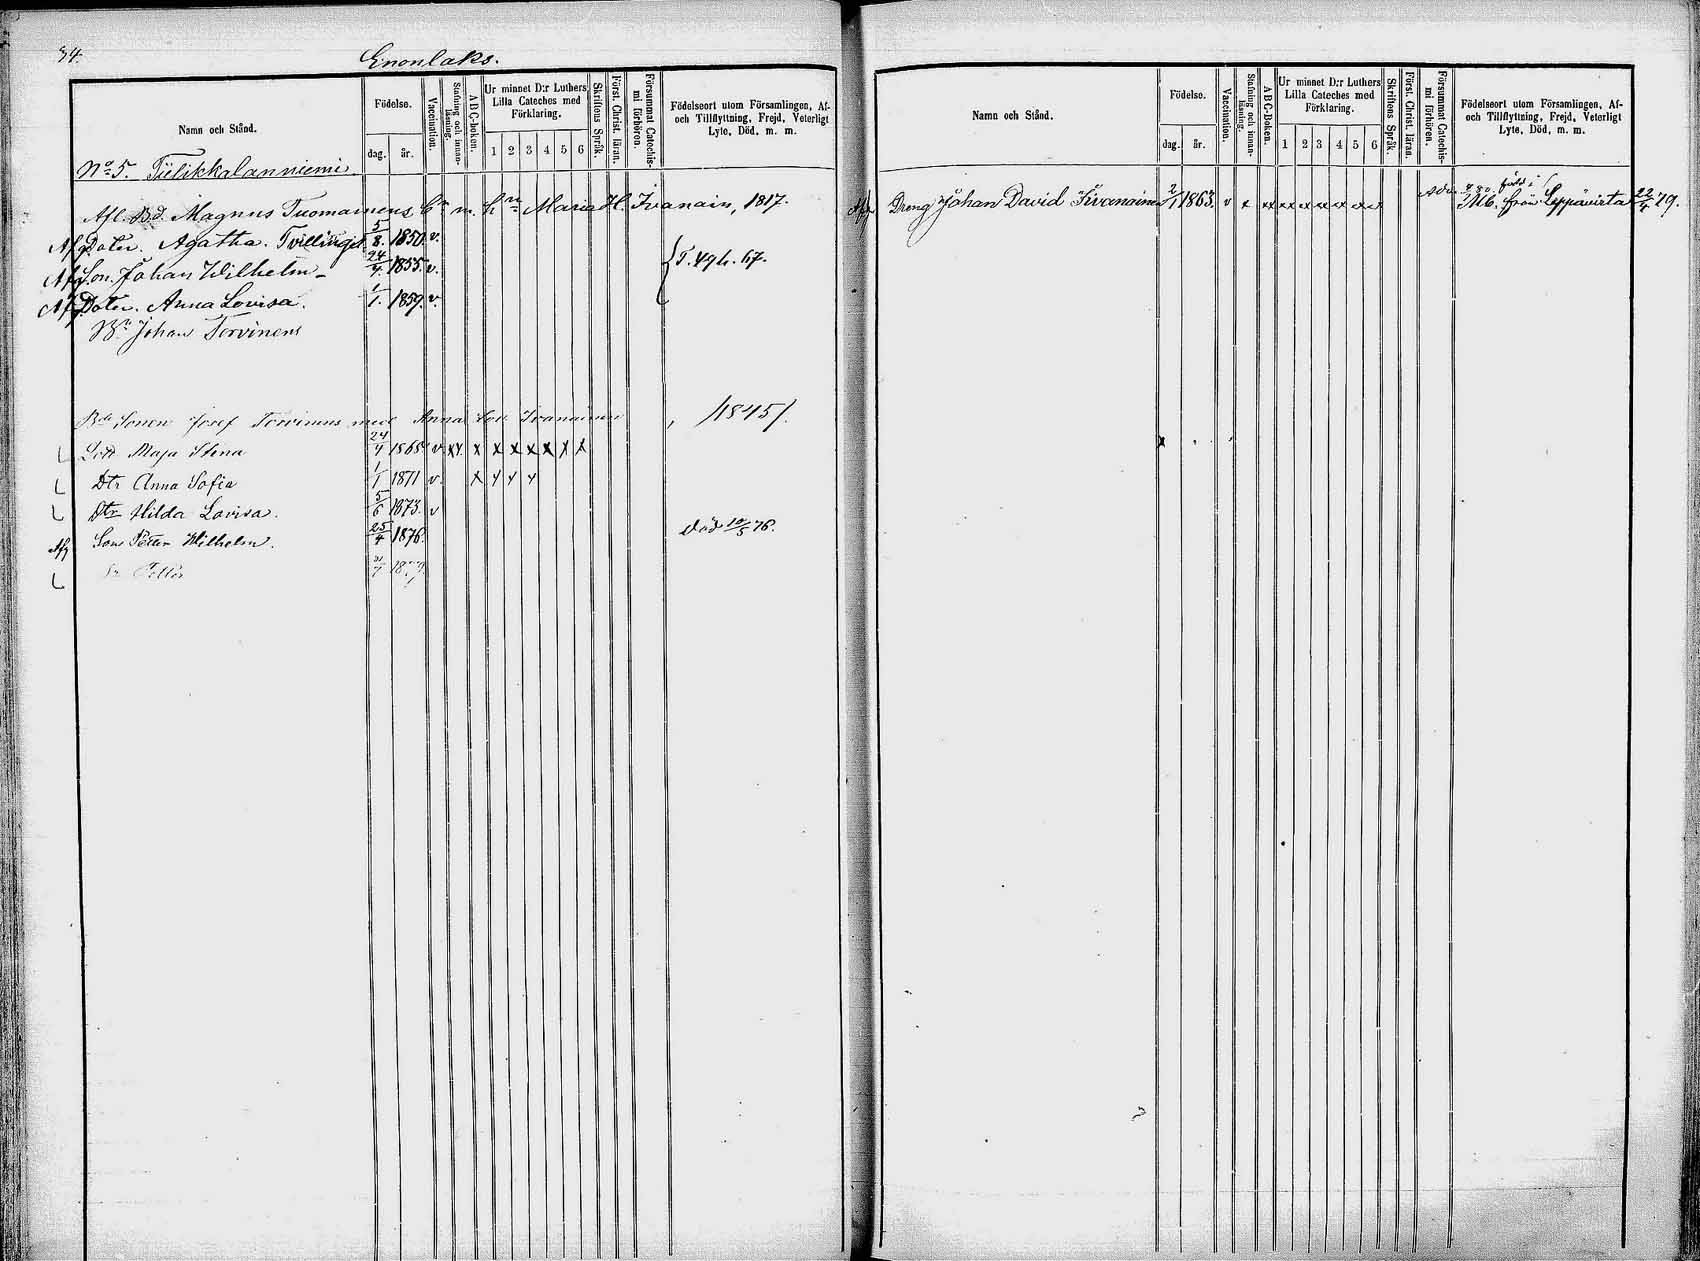 34.
Enonlaks.
Namn och Stånd.
Födelse.
dag.
år.
Vaccination.
Stafning och innanläsning.
ABC-boken.
Ur minnet D:r Luthers Lilla Cateches med Förklaring.
1 2 3 4 5 6
Skriftens Språk.
Först. Christ. läran.
Försummat Catechismi förhören.
Födelseort utom Församlingen, Af-
och Tillflyttning, Frejd, Veterligt
Lyte, Död, m. m.
No 5. Tiilikkalanniemi
Afl. Bd. Magnus Tuomainens Maria H. Ivanain, 1817.
Afg Doter. Agatha. Tvillinget 5/8. 1850. v.
Afg Son. Johan Wilhelm 24/4. 1855. v. T. 49 h. 67.
Afg Doter. Anna Lovisa. 1/1. 1859. v.
Bn Johan Torvinens
Bde Sonen Josef Torvinens med Anna Lov. Ivanainen, /1845/.
L Dott Maja Stina 24/4 1868 v x x x x x x x x
L Dtr Anna Sofia 1/1 1871 v. x
L Dtr Hilda Lovisa. 5/6 1873. v
Afg Son Petter Wilhelm. 25/4 1876. död 10/5 76.
L Sn Petter
Namn och Stånd.
Födelse.
dag.
år.
Vaccination.
Stafning och innanläsning.
ABC-boken.
Ur minnet D:r Luthers Lilla Cateches med Förklaring.
1 2 3 4 5 6
Skriftens Språk.
Först. Christ. läran.
Försummat Catechismi förhören.
Födelseort utom Församlingen, Af-
och Tillflyttning, Frejd, Veterligt
Lyte, Död, m. m.
Afg Dreng Johan David Kivanainen 2/1 1863. v x xx xx xx xx xx xx xx från Leppävirta 22/4 79.
född i